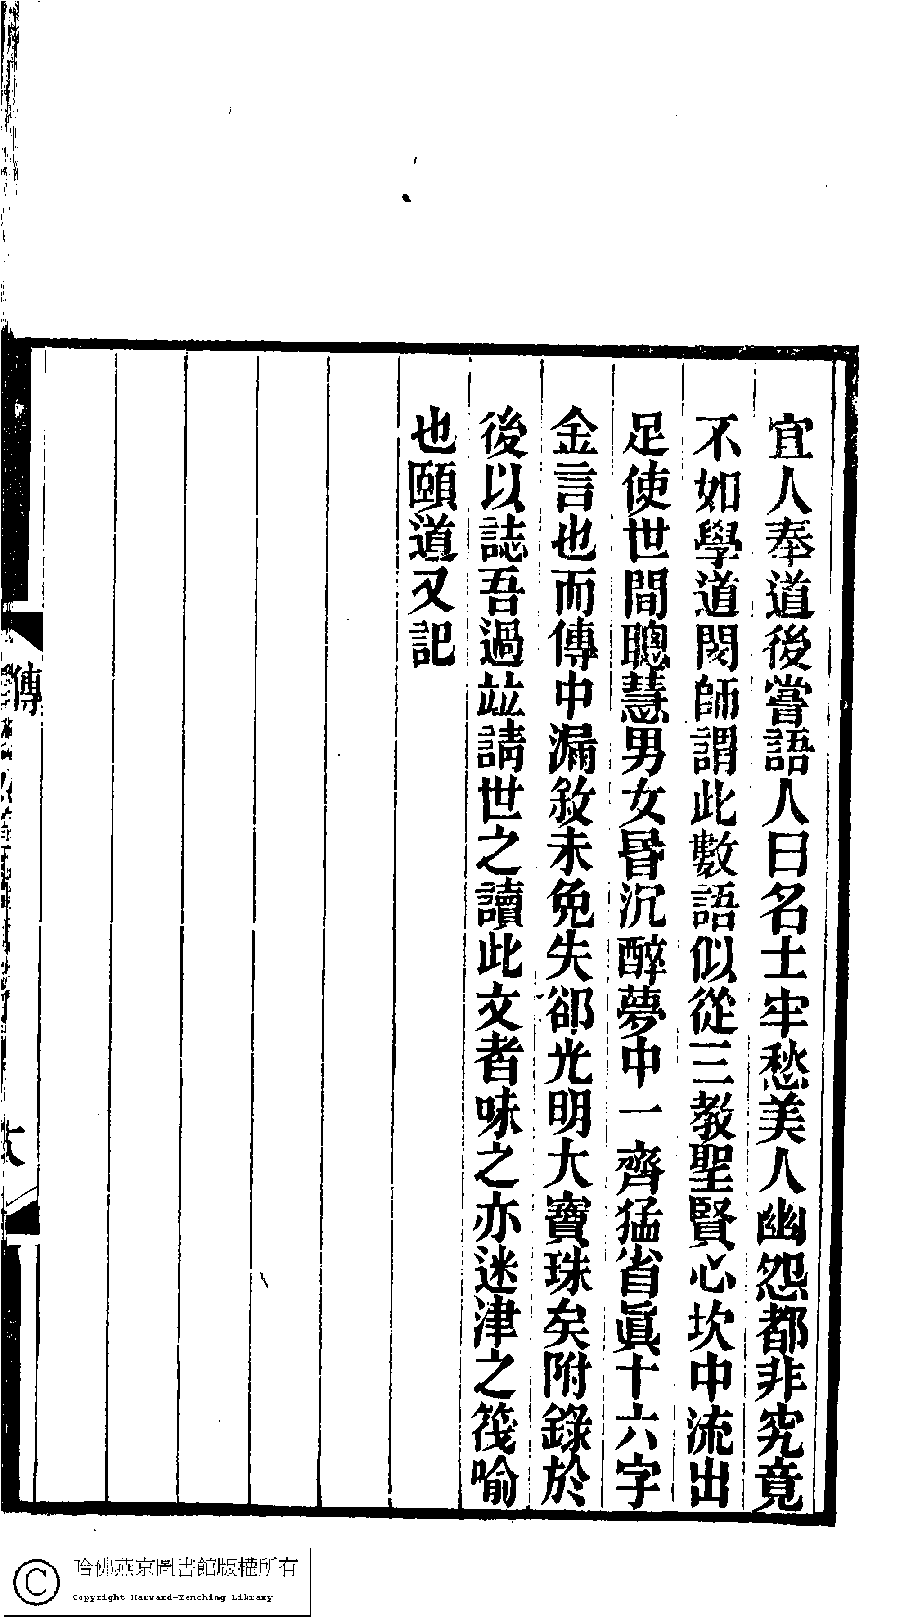 宜人奉道後嘗語人曰名士牢愁美人幽怨都非究竟
不如學道閔師謂此數語似從三教聖賢心坎中流出
足使世間聰慧男女昬沉醉夢中一齊猛省眞十六字
金言也而傳中漏敘未免失卻光明大寶珠矣附錄於
後以誌吾過竝請世之讀此文者味之亦迷津之筏喻
也頤道又記
傳
哈佛燕京圖書館版權所有
Copyright Harvard-Yenching Library